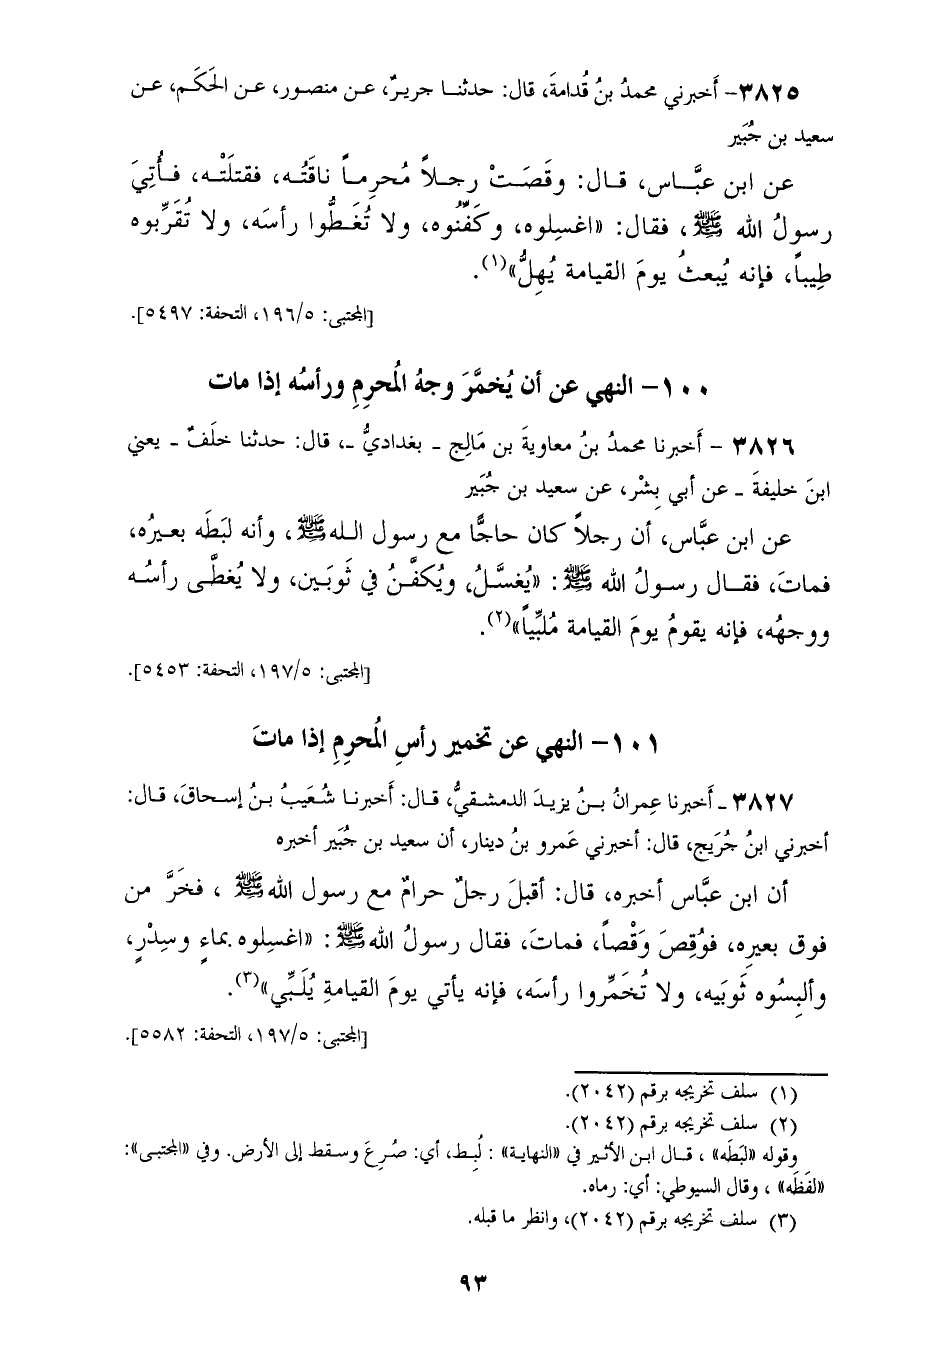 ٣٨٢٥- أَخبرني محمدُ بنُ قُدامةَ، قال: حدثنـا جريرٌ، عـن منصـور، عـن الحَكَـم، عـن
سعيد بن جُبَير
عن ابن عبَّـاس، قـال: وقَصَـتْ رجـلاً مُحرِمـاً ناقَتُـه، فقتلَتْـه، فـأُتِيَ
رسولُ الله ﷺ، فقال: «اغسِلوه، وكَفِّنُوه، ولا تُغَـطُّوا رأسَه، ولا تُقَرِّبوه
طِيباً، فإنه يُبعثُ يومَ القيامة يُهِلُّ»(١).
[المجتبى: ١٩٦/٥، التحفة: ٥٤٩٧].
١٠٠- النهي عن أن يُخمَّرَ وجهُ المُحرِمِ ورأسُه إذا مات
٣٨٢٦ - أَخبرنا محمدُ بنُ معاويةَ بن مَالِج ـ بغداديُّ ـ، قال: حدثنا خلَفٌ ـ يعني
ابنَ خليفةَ ـ عن أبي بِشْر، عن سعيد بن جُبَير
عن ابن عبَّاس، أن رجلاً كان حاجًّا مع رسول اللـه ﷺ، وأنه لبَطَه بعـيرُه،
فماتَ، فقـال رسـولُ الله ﷺ: «يُغسَّلُ، ويُكفَّنُ في ثَوبَين، ولا يُغطَّى رأسُـه
ووجهُه، فإنه يقومُ يومَ القيامة مُلبِّياً»(٢).
[المجتبى: ١٩٧/٥، التحفة: ٥٤٥٣].
١٠١- النهي عن تخمير رأسِ المُحرِمِ إذا ماتَ
٣٨٢٧ ـ أَخبرنا عِمرانُ بـنُ يزيـدَ الدمشـقيُّ، قـال: أَخبرنـا شُعَيبُ بـنُ إسـحاقَ، قـال:
أخبرني ابنُ جُرَيج، قال: أخبرني عَمرو بنُ دينار، أن سعيد بن جُبَير أخبره
أن ابن عبَّاس أخبره، قال: أقبلَ رجلٌ حرامٌ مع رسول الله ﷺ ، فخَرَّ من
فوق بعيرِه، فوُقِصَ وَقْصاً، فماتَ، فقال رسولُ الله ﷺ: «اغسِلوه بماءٍ وسِدْرٍ،
وألبِسُوه ثَوبَيه، ولا تُخَمِّروا رأسَه، فإنه يأتي يومَ القيامةِ يُلَبِّي»(٣).
[المجتبى: ١٩٧/٥، التحفة: ٥٥٨٢].
(١) سلف تخريجه برقم (٢٠٤٢).
(٢) سلف تخريجه برقم (٢٠٤٢).
وقوله «لبَطَه» ، قـال ابـن الأثـير في «النهاية» : لُبِـط، أي: صُـرِعَ وسـقط إلى الأرض. وفي «المجتبـى»:
«لفَظَه» ، وقال السيوطي: أي: رماه.
(٣) سلف تخريجه برقم (٢٠٤٢)، وانظر ما قبله.
٩٣